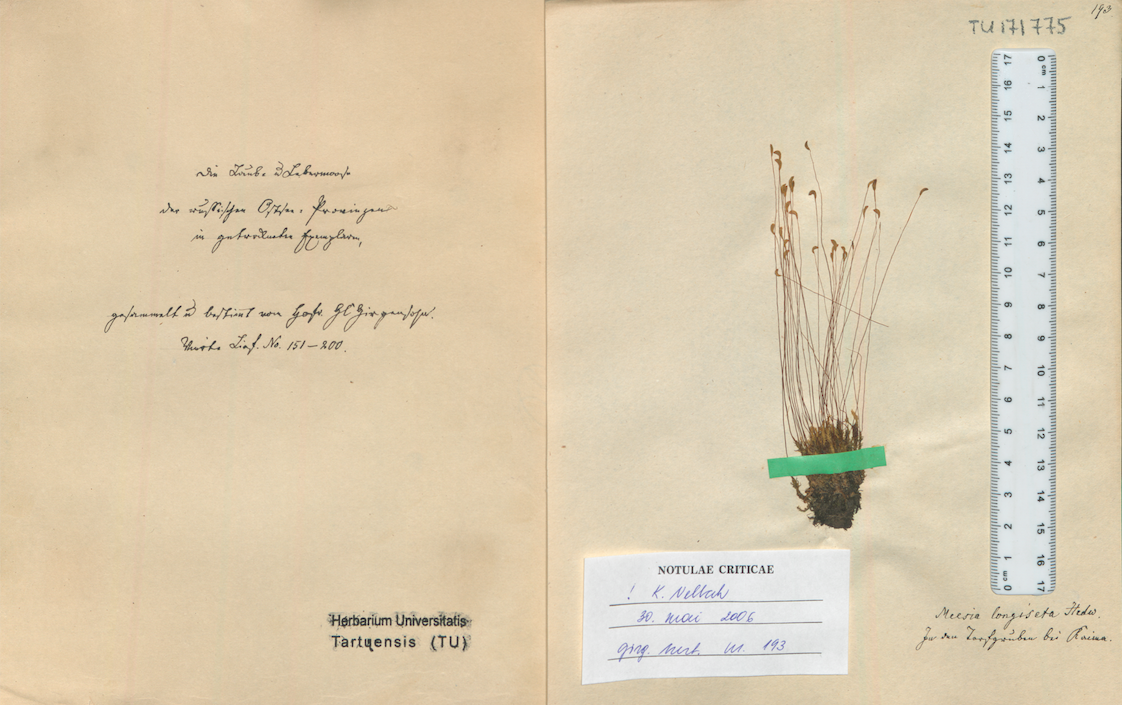 Die Laub- u Lebermoose
der russischen Ostsee-Provinzen
in getrockneten Exemplaren,
gesammelt u bestimmt von Hofr. GC Girgensohn.
Vierte Lief. No. 151-200.
Herbarium Universitatis
Tartuensis (TU)
193
TU171775
0 cm 1 2 3 4 5 6 7 8 9 10 11 12 13 14 15 16 17
17 16 15 14 13 12 11 10 9 8 7 6 5 4 3 2 1 0 cm
NOTULAE CRITICAE
! K. Vellak
30. mai 2006
girg. herb. 193
Meesia longiseta Hedw.
In den Torfgruben bei